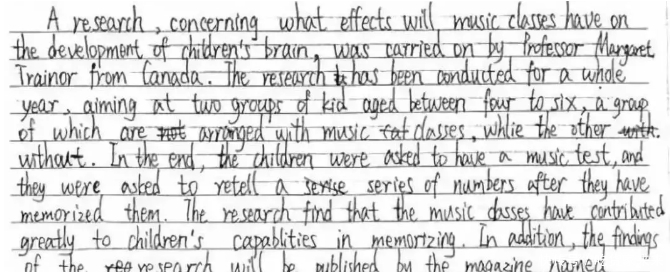 A research, concerning what effects will music classes have on
the development of children's brain, was carried on by Professor Margaret
Trainor from Canada. The research has been conducted for a whole
year, aiming at two groups of kid aged between four to six, a group
of which are not arranged with music cat classes, whlie the other with.
without. In the end, the children were asked to have a music test, and
they were asked to retell a serise series of numbers after they have
memorized them. The research find that the music classes have contributed
greatly to children's capablities in memorizing. In addition, the findings
of the research will be published by the magazine named